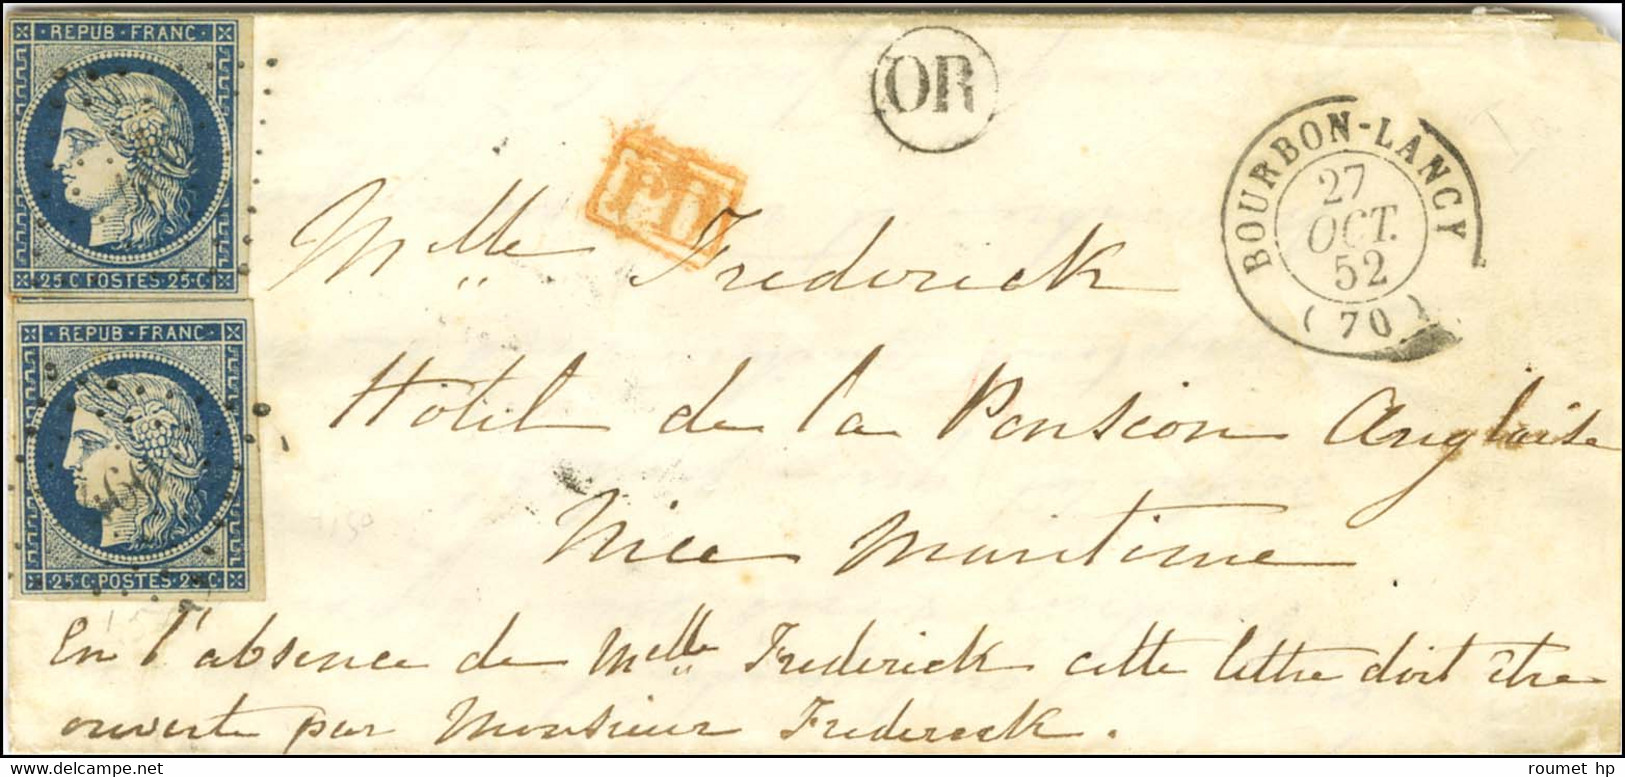 REPUB·FRANC·
25·C·POSTES·25·C·
REPUB·FRANC·
25·C·POSTES·25·C
OR
PD
BOURBON-LANCY
27
OCT.
52
(70)
Mlle Frederick
Hôtel de la Pension Anglaise
Nice Maritime
En l'absence de Mlle Frederick cette lettre doit être
ouverte par Monsieur Frederick.
roumet hp